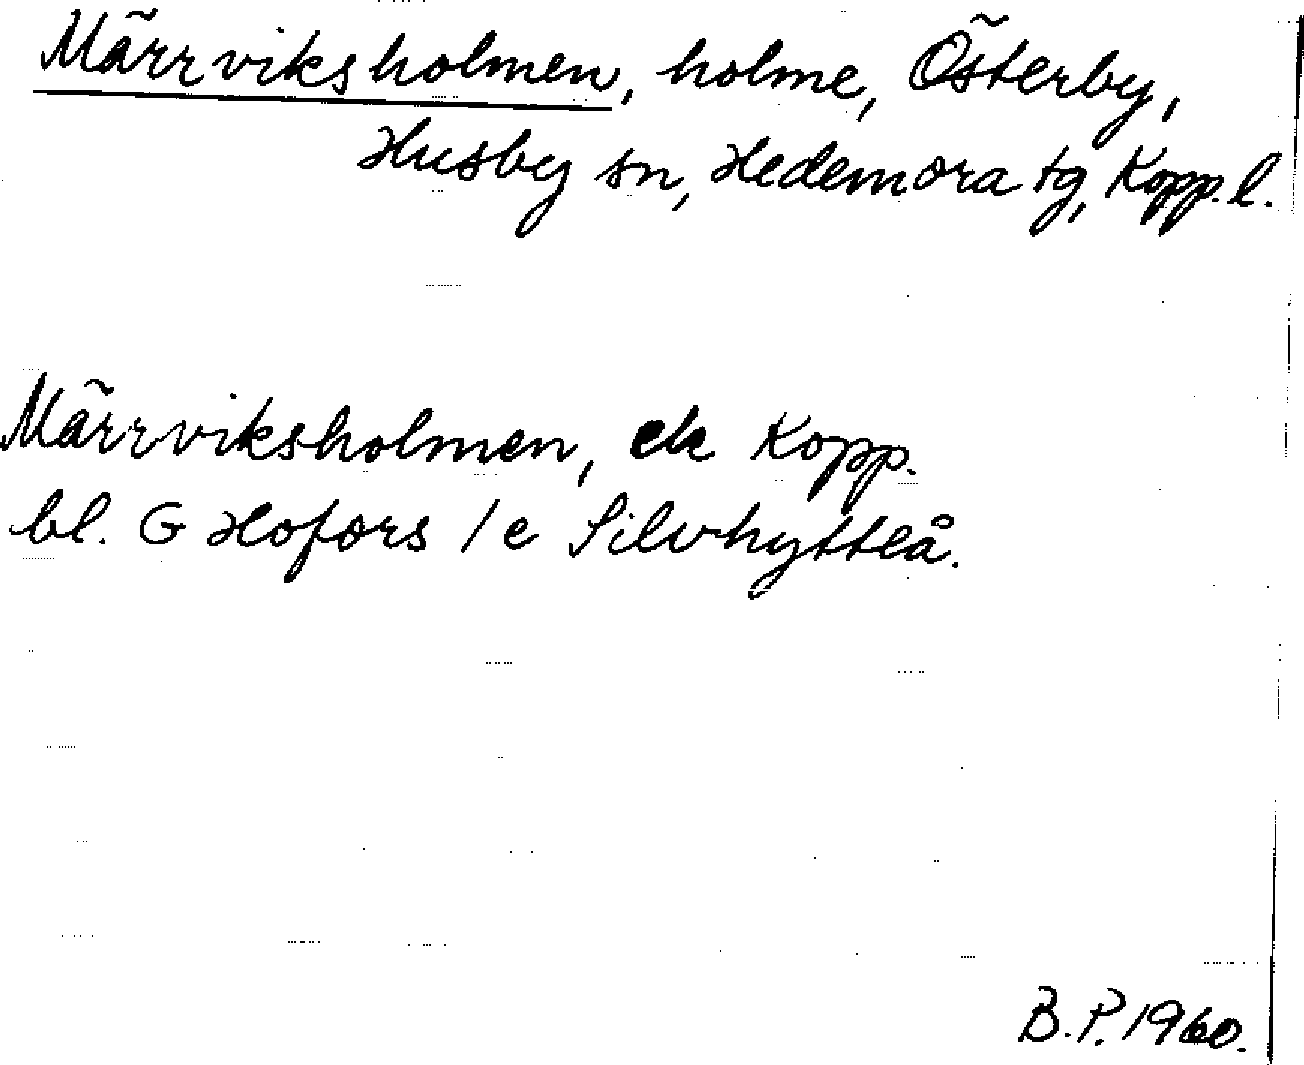 Märrviksholmen, holme, Österby,
Husby sn, Hedemora tg, Kopp. l.
Märrviksholmen, ek Kopp.
bl. G Hofors / e Silvhytteå.
B.P. 1960.